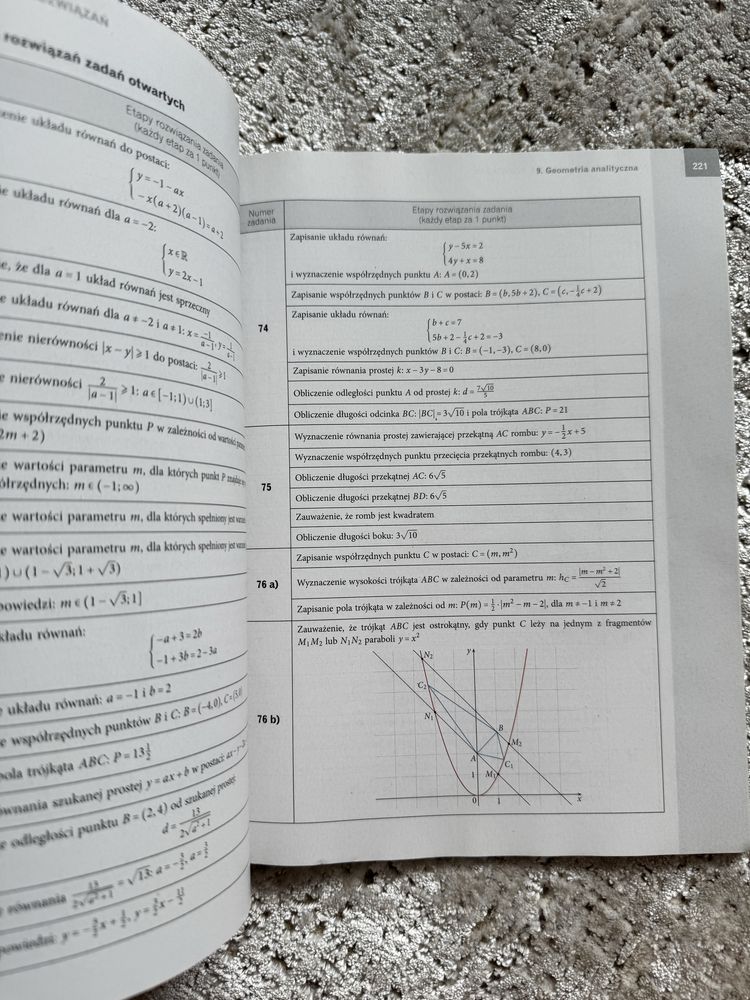 ZWIĄZAŃ
rozwiązań zadań otwartych
Etapy rozwiązania zadania
(każdy etap za 1 punkt)
układu równań do postaci:
{ y = −1 − ax
{ −x(a+2)(a−1) = a+2
układu równań dla a = −2:
{ x ∈ ℝ
{ y = 2x − 1
że dla a = 1 układ równań jest sprzeczny
układu równań dla a ≠ −2 i a ≠ 1: x = −1/(a−1),
nierówności |x − y| ⩾ 1 do postaci: 2/|a−1| ⩾ 1
nierówności 2/|a−1| ⩾ 1: a ∈ [−1; 1) ∪ (1; 3]
współrzędnych punktu P w zależności od
2m + 2)
wartości parametru m, dla których punkt P
rzędnych: m ∈ (−1; ∞)
wartości parametru m, dla których spełniony jest
wartości parametru m, dla których spełniony jest
) ∪ (1 − √3; 1 + √3)
powiedzi: m ∈ (1 − √3; 1]
układu równań:
{ −a + 3 = 2b
{ −1 + 3b = 2 − 3a
układu równań: a = −1 i b = 2
współrzędnych punktów B i C: B = (−4, 0),
pola trójkąta ABC: P = 13½
równania szukanej prostej y = ax + b w postaci:
odległości punktu B = (2, 4) od szukanej prostej:
d = 13/(2√(a²+1))
równania 13/(2√(a²+1)) = √13: a = −3/2, a = 3/2
9. Geometria analityczna 221
Numer zadania
Etapy rozwiązania zadania
(każdy etap za 1 punkt)
74
Zapisanie układu równań:
{ y − 5x = 2
{ 4y + x = 8
i wyznaczenie współrzędnych punktu A: A = (0, 2)
Zapisanie współrzędnych punktów B i C w postaci: B = (b, 5b + 2), C = (c, −¼c + 2)
Zapisanie układu równań:
{ b + c = 7
{ 5b + 2 − ¼c + 2 = −3
i wyznaczenie współrzędnych punktów B i C: B = (−1, −3), C = (8, 0)
Zapisanie równania prostej k: x − 3y − 8 = 0
Obliczenie odległości punktu A od prostej k: d = 7√10/5
Obliczenie długości odcinka BC: |BC| = 3√10 i pola trójkąta ABC: P = 21
75
Wyznaczenie równania prostej zawierającej przekątną AC rombu: y = −½x + 5
Wyznaczenie współrzędnych punktu przecięcia przekątnych rombu: (4, 3)
Obliczenie długości przekątnej AC: 6√5
Obliczenie długości przekątnej BD: 6√5
Zauważenie, że romb jest kwadratem
Obliczenie długości boku: 3√10
76 a)
Zapisanie współrzędnych punktu C w postaci: C = (m, m²)
Wyznaczenie wysokości trójkąta ABC w zależności od parametru m: h_C = |m − m² + 2|/√2
Zapisanie pola trójkąta w zależności od m: P(m) = ½ · |m² − m − 2|, dla m ≠ −1 i m ≠ 2
76 b)
Zauważenie, że trójkąt ABC jest ostrokątny, gdy punkt C leży na jednym z fragmentów
M₁M₂ lub N₁N₂ paraboli y = x²
N₂
y
C₂
N₁
B
M₂
A
C₁
1
M₁
0
1
x